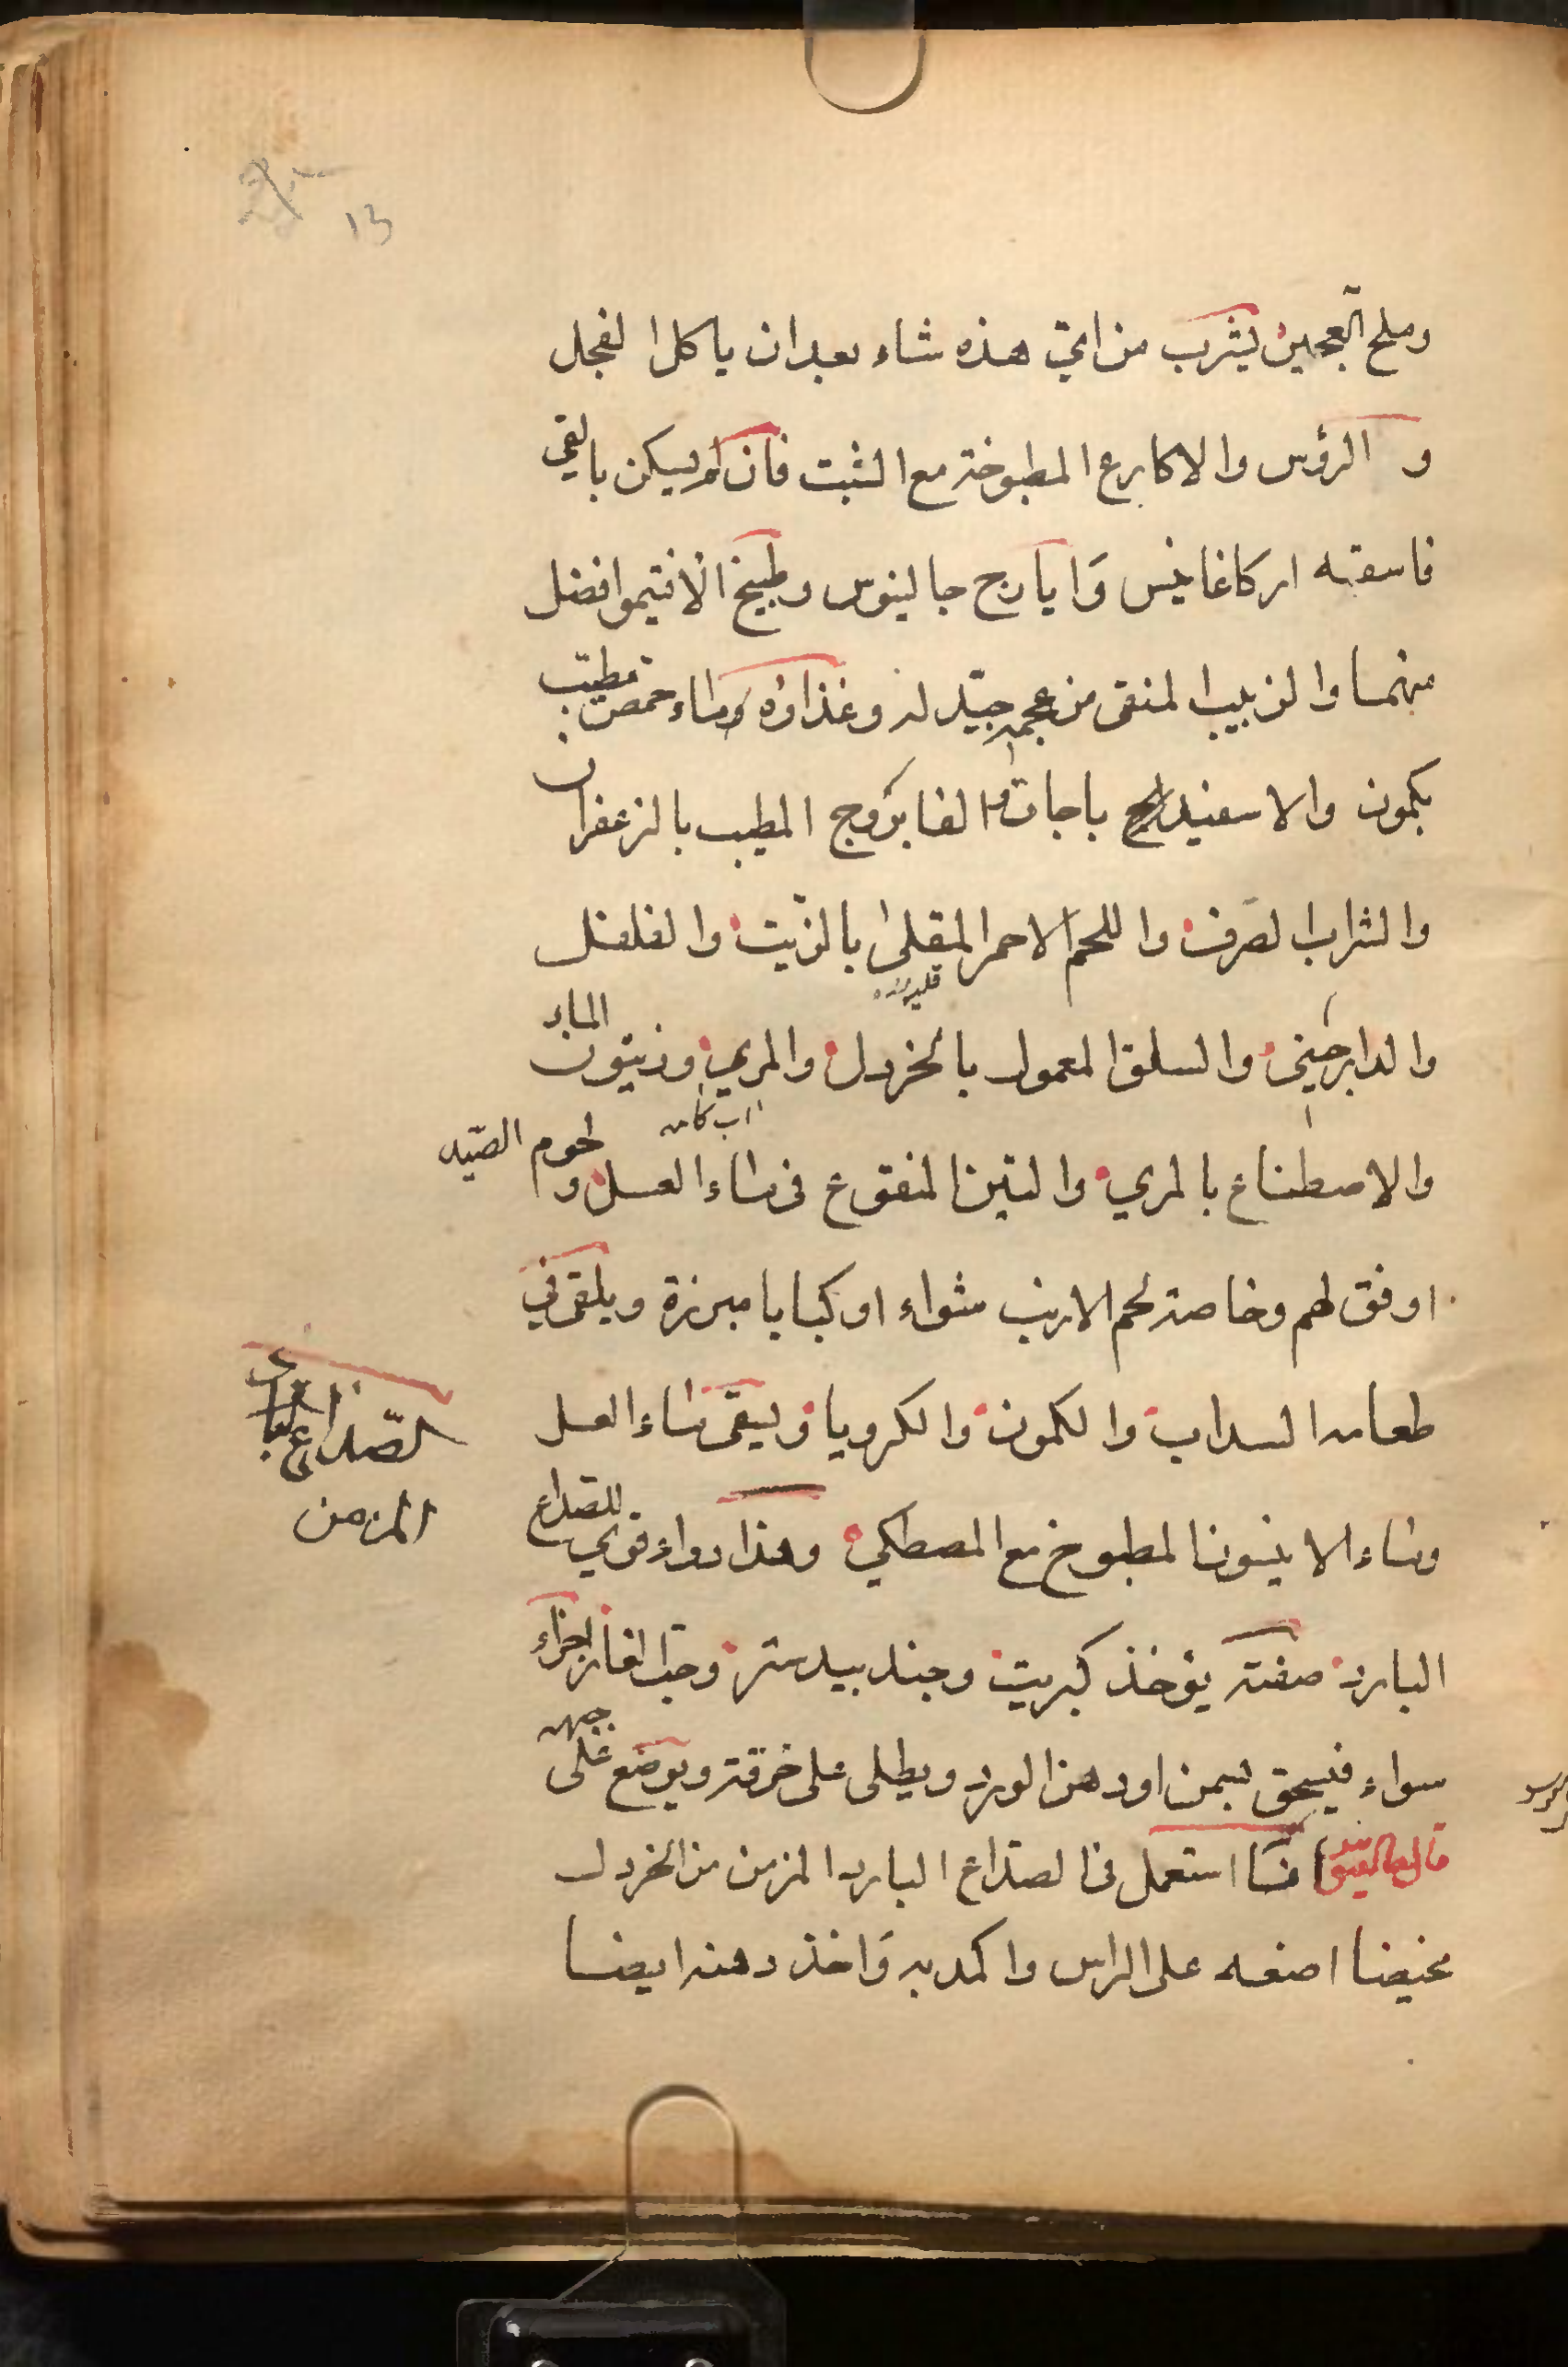 13
وملح العجين يشرب من اي هذه شاء بعد ان ياكل الفجل
و الرؤس والاكارع المطبوخة مع الشبت فان لم يسكن بالقي
فاسقه اركاغانيس وَايارج جالينوس وطبيخ الافتيمو افضل
منهما والزبيب المنقى من عجمه جيّد له وغذاؤه وماء حمص مطيّب
بكمون والاسفيد باجات والفاروج المطيب بالزعفران
والشراب الصرف واللحم الاحمر المقلى بالزيت والفلفل
قليه
والدارچيني والسلق المعمول بالخردل والمري وزيتون الماء
اب كامه
والاصطناع بالمري والتين المنقوع في ماء العسل ولحوم الصيد
اوفق لهم وخاصة لحم الارنب مشواء او كبابا مبرزة ويلقى في
طعامه السداب والكمون والكرويا وَيسقى ماء العسل
وماء الانيسون المطبوخ مع المصطكي وهذا دواء قوي للصداع
الصّداع
المزمن
البارد صفته يؤخذ كبريت وجندبيدستر وحب الغار اجزاء
سواء فيسحق بسمن او دهن الورد ويطلى على خرقة ويوضع على جبهه
قال جالينوس انا استعمل في الصداع البارد المزمن من الخردل
مخيضا اضعه على الراس واكمد به وَاخذ دهنه ايضا